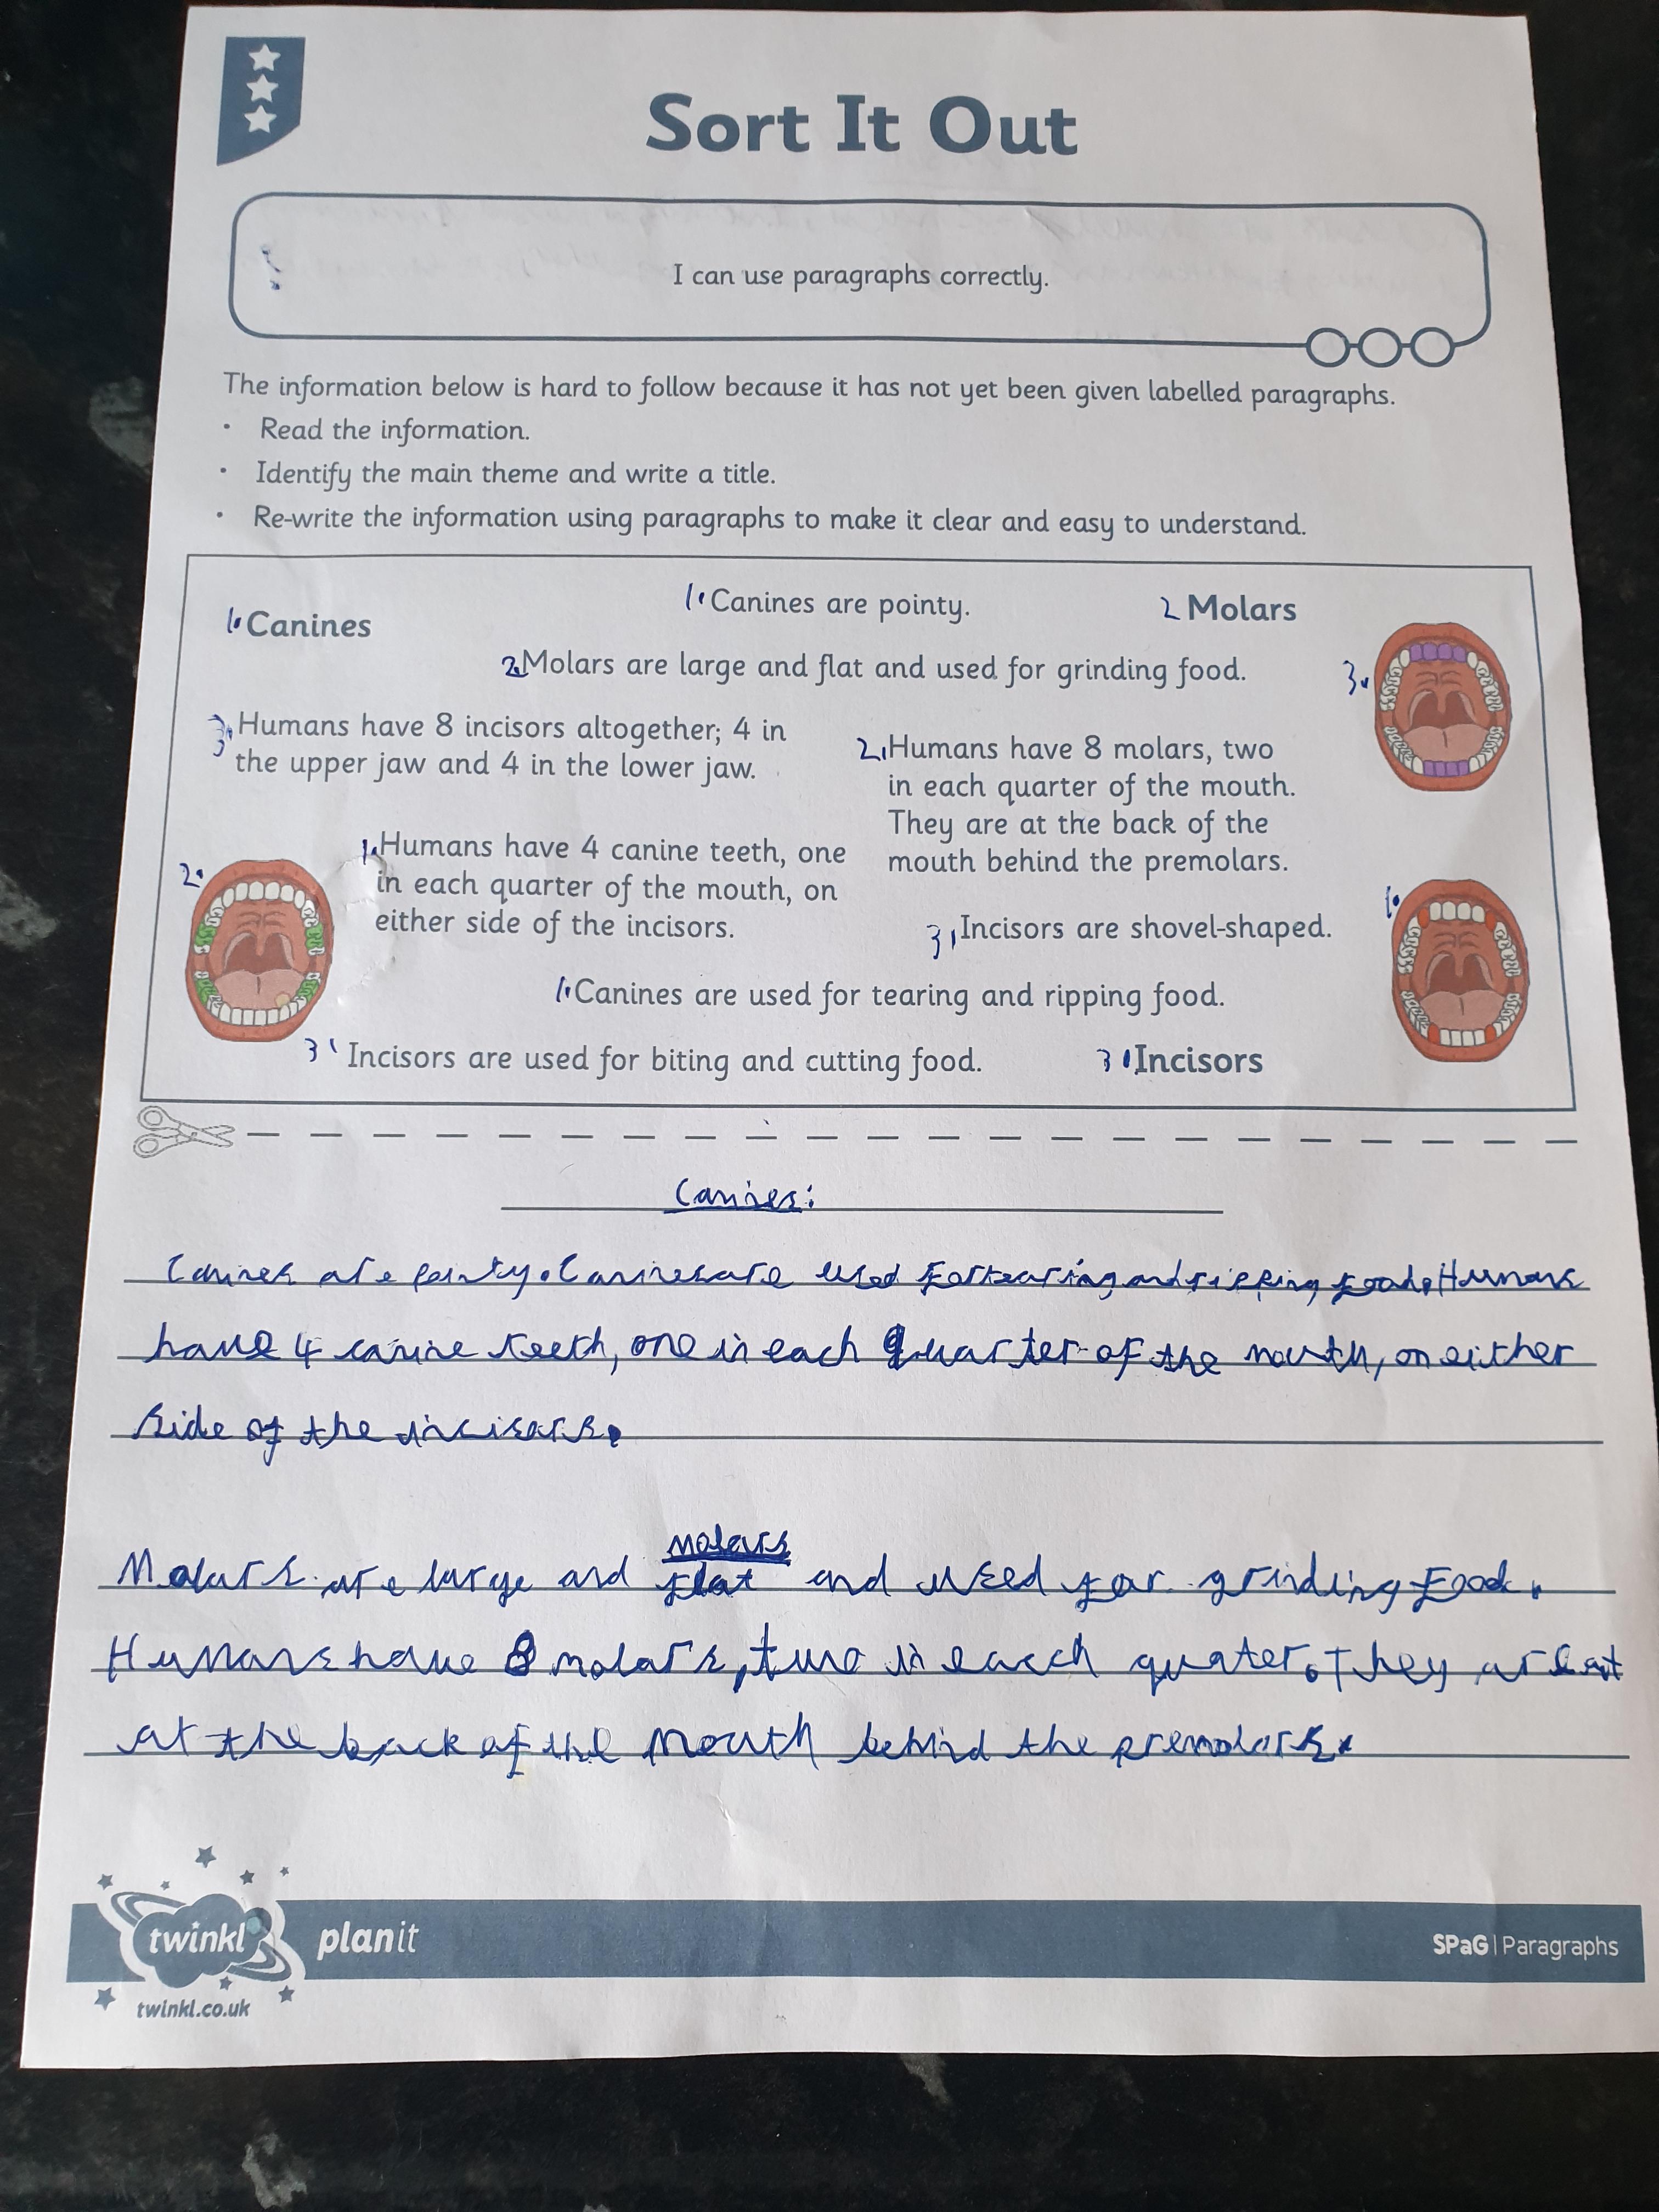 Sort It Out
I can use paragraphs correctly.
The information below is hard to follow because it has not yet been given labelled paragraphs.
• Read the information.
• Identify the main theme and write a title.
• Re-write the information using paragraphs to make it clear and easy to understand.
1. Canines
1. Canines are pointy.
2 Molars
2. Molars are large and flat and used for grinding food.
3.
3. Humans have 8 incisors altogether; 4 in
the upper jaw and 4 in the lower jaw.
2. Humans have 8 molars, two
in each quarter of the mouth.
They are at the back of the
mouth behind the premolars.
1. Humans have 4 canine teeth, one
in each quarter of the mouth, on
either side of the incisors.
2.
1.
3. Incisors are shovel-shaped.
1. Canines are used for tearing and ripping food.
3. Incisors are used for biting and cutting food.
3. Incisors
Canines:
Canines are pointy. Canines are used for tearing and ripping food. Humans
have 4 canine teeth, one in each quarter of the mouth, on either
side of the incisors.
molars
Molars are large and flat and used for grinding food.
Humans have 8 molars, two in each quater. They are at
at the back of the mouth behind the premolars.
twinkl planit
SPaG | Paragraphs
twinkl.co.uk